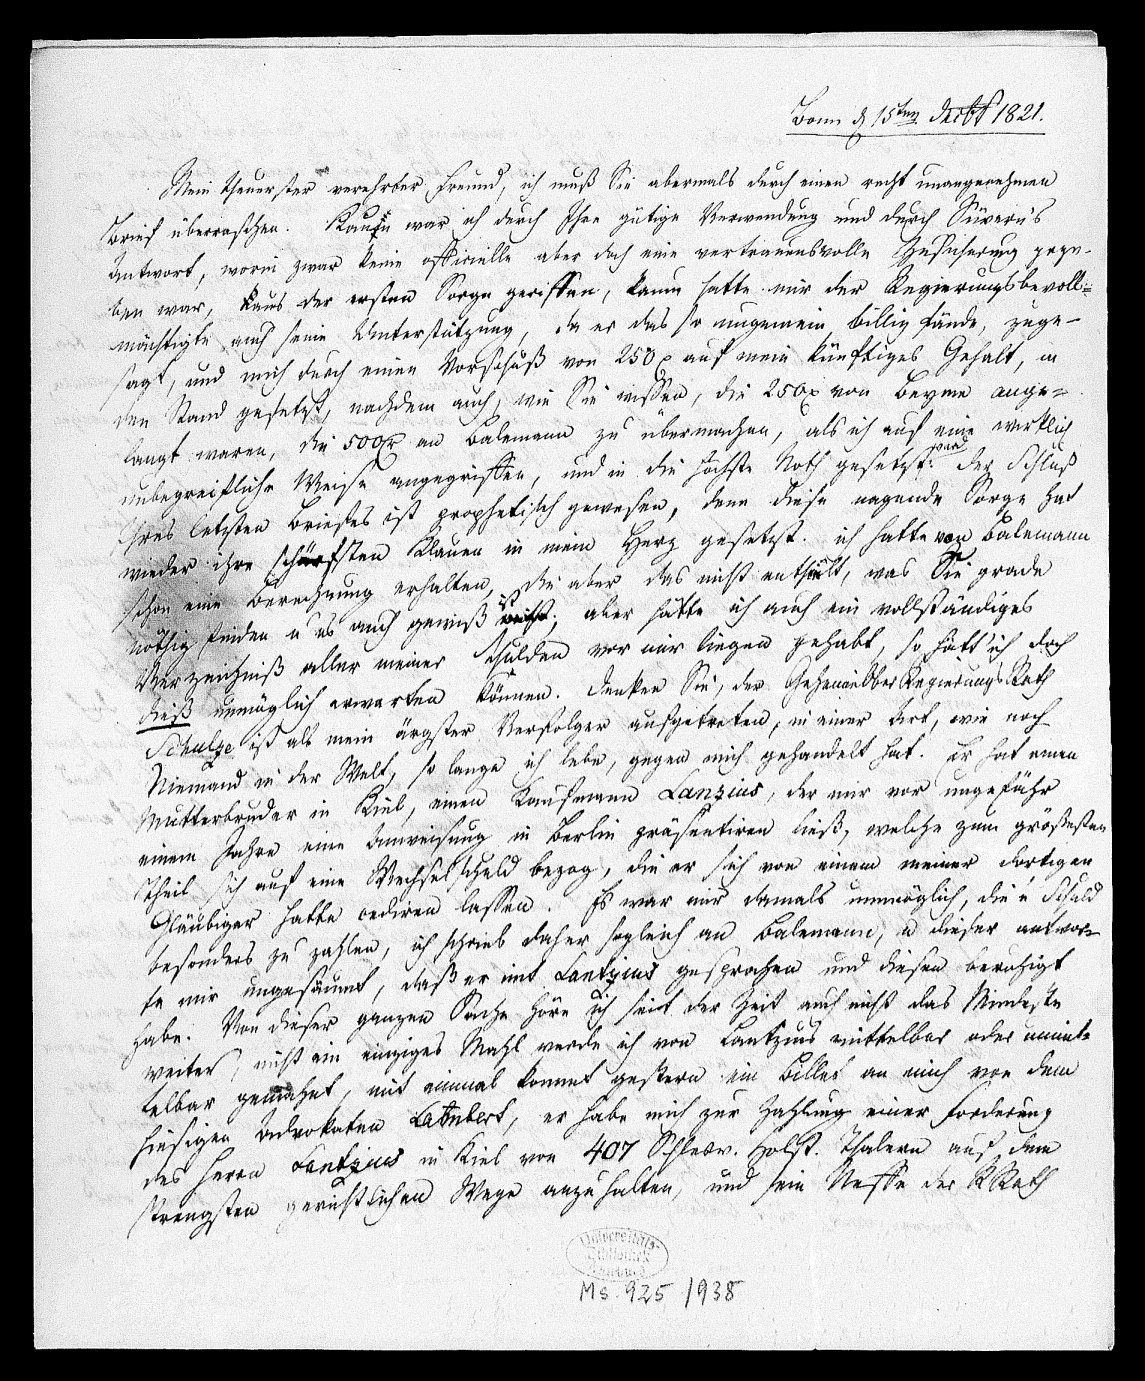 Bonn d 15ten Decbr 1821.
Mein theuerster verehrter Freund, ich muß Sie abermals durch einen recht unangenehmen
Brief überraschen. Kaum war ich durch Ihre gütige Verwendung und durch Süvern's
Antwort, worin zwar keine officielle aber doch eine vertrauensvolle Zusicherung gege-
ben war, aus der ersten Sorge gerissen, kaum hatte mir der Regierungsbevoll-
mächtigte auch seine Unterstützung, da er das so ungemein billig fände, zuge-
sagt, und mich durch einen Vorschuß von 250 auf mein künftiges Gehalt, in
den Stand gesetzt, nachdem auch, wie Sie wissen, die 250 von Beyme ange-
langt waren, die 500 an Balemann zu übermachen, als ich auf eine wirklich
unbegreifliche Weise angegriffen, und in die höchste Noth gesetzt ward. Der Schluß
Ihres letzten Briefes ist prophetisch gewesen, denn diese nagende Sorge hat
wieder ihre schärfsten Klauen in mein Herz gesetzt. ich hatte von Balemann
schon eine Berechnung erhalten, die aber das nicht enthält, was Sie grade
nöthig finden u es auch gewiß ist; aber hätte ich auch ein vollständiges
Verzeichniß aller meiner Schulden vor mir liegen gehabt, so hätt ich doch
dieß unmöglich erwarten können. Denken Sie, der GeheimeOberRegierungsRath
Schulze ist als mein ärgster Verfolger aufgetreten, in einer Art, wie noch
Niemand in der Welt, so lange ich lebe, gegen mich gehandelt hat. Er hat einen
Mutterbruder in Kiel, einen Kaufmann Lantzius, der mir vor ungefähr
einem Jahre eine Anweisung in Berlin präsentiren ließ, welche zum größesten
Theil sich auf eine Wechselschuld bezog, die er sich von einem meiner dortigen
Gläubiger hatte cediren lassen. Es war mir damals unmöglich, diese Schuld
besonders zu zahlen, ich schrieb daher sogleich an Balemann, u dieser antwor-
te mir ungesäumt, daß er mit Lantzius gesprochen und diesen beruhigt
habe. Von dieser ganzen Sache höre ich seit der Zeit auch nicht das Mindeste
weiter, nicht ein einziges Mahl werde ich von Lantzius mittelbar oder unmit-
telbar gemahnt, mit einmal kommt gestern ein Billet an mich von dem
hiesigen Advokaten Lambert, er habe mich zur Zahlung einer Forderung
des Herrn Lantzius in Kiel von 407 Schlesw. Holst. Thalern auf dem
strengsten gerichtlichen Wege anzuhalten, und sein Neffe der RRath
Universitäts-
Bibliothek
Ms. 925 / 938